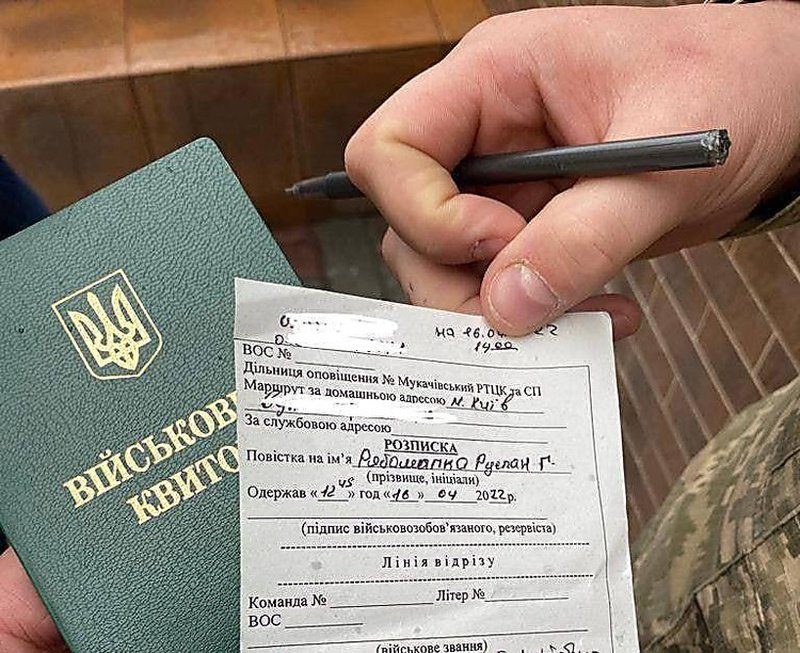 ВІЙСЬКОВ
КВИТО
на 16.04 22
14 00
ВОС №
Дільниця оповіщення № Мукачівський РТЦК та СП
Маршрут за домашньою адресою м. Київ
За службовою адресою
РОЗПИСКА
Повістка на ім'я Рябошапка Руслан Г.
(прізвище, ініціали)
Одержав «12 45» год «16» 04 2022р.
(підпис військовозобов'язаного, резервіста)
Лінія відрізу
Команда № Літер №
ВОС
(військове звання)